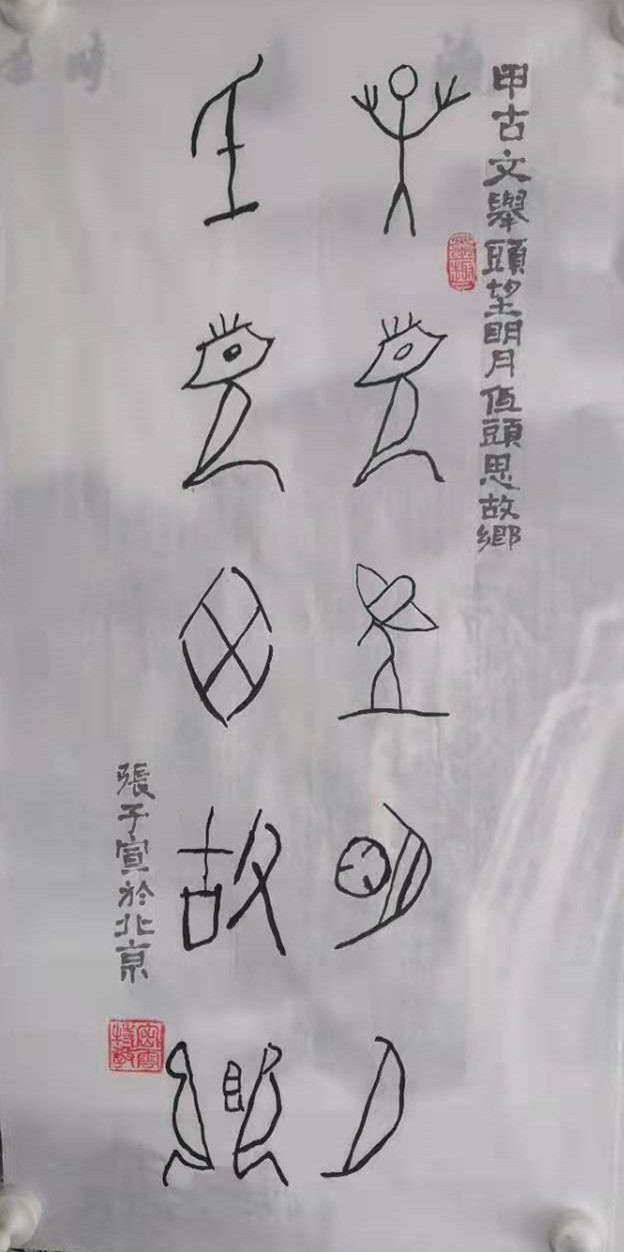 甲古文舉頭望明月低頭思故鄉
舉頭望明月
低頭思故鄉
張子宣於北京